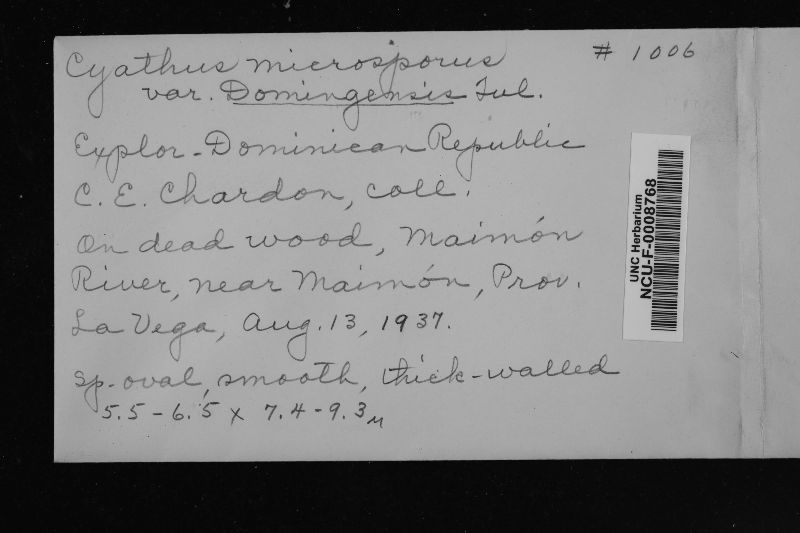 Cyathus microsporus # 1006
var. Domingensis Tul.
Explor. Dominican Republic
C. E. Chardon, coll.
On dead wood, Maimón
River, near Maimón, Prov.
La Vega, Aug. 13, 1937.
Sp. oval, smooth, thick-walled
5.5 - 6.5 x 7.4 - 9.3 μ
UNC Herbarium
NCU-F-0008768